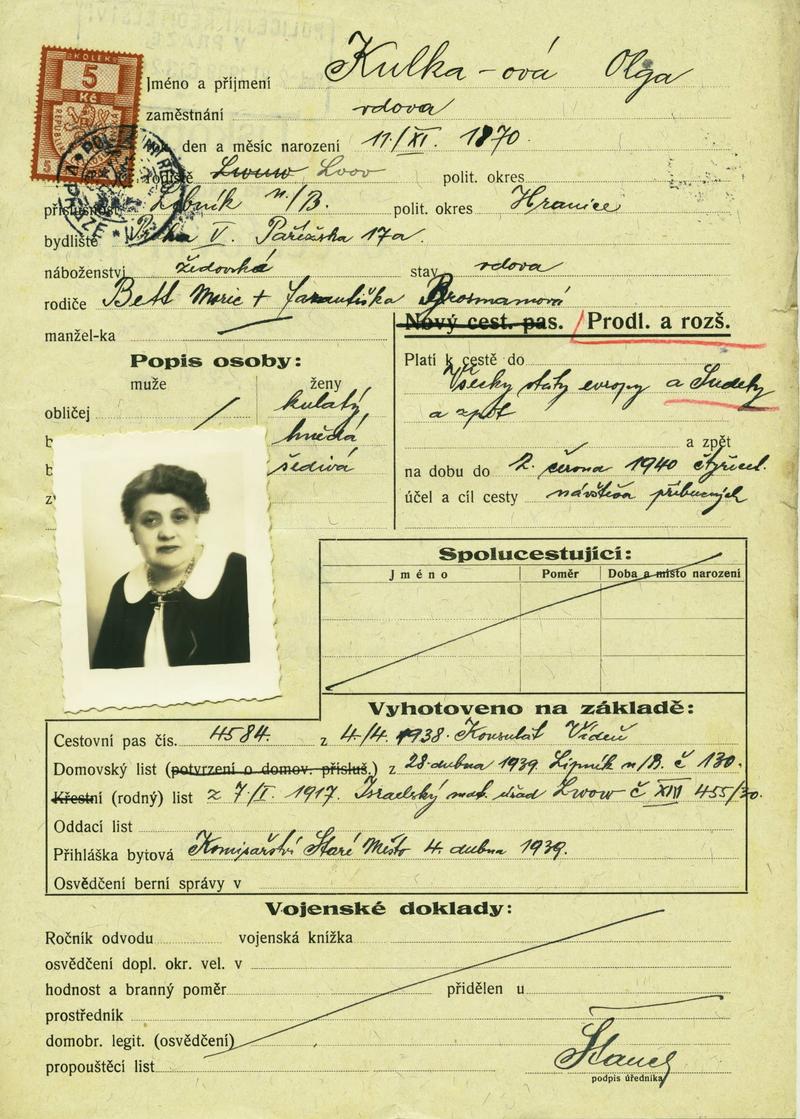 KOLEK
5
Kč
Jméno a příjmení Kulka-ová Olga
zaměstnání vdova
den a měsíc narození 11/XI. 1870
rodiště Lwow Lvov polit. okres
příslušnost Lipník n/B. polit. okres Hranice
bydliště Praha V. Pařížska 17a.
náboženství židovská stav vdova
rodiče Bett Moric + Brosmamová
manžel-ka
Nový cest. pas. / Prodl. a rozš.
Popis osoby:
muže ženy
obličej kulatý
hnědá
šedivá
Platí k cestě do
Všecky státy evropy a Sudety
a zpět
a zpět
na dobu do 2. června 1940 čtyřicet.
účel a cíl cesty návštěva příbuzných
Spolucestující:
Jméno Poměr Doba a místo narození
Vyhotoveno na základě:
Cestovní pas čís. 4584. z 4./4. 1938. Konsulát Vídeň
Domovský list (potvrzení o domov. přísluš.) z 28. dubna 1939. Lipník n/B. č 130.
Křestní (rodný) list z 7/I. 1917. Israelský mat. úřad Lwow č XIII 455/30.
Oddací list
Přihláška bytová Komisařství Staré Město 4. dubna 1939.
Osvědčení berní správy v
Vojenské doklady:
Ročník odvodu vojenská knížka
osvědčení dopl. okr. vel. v
hodnost a branný poměr přidělen u
prostředník
domobr. legit. (osvědčení)
propouštěcí list
podpis úředníka